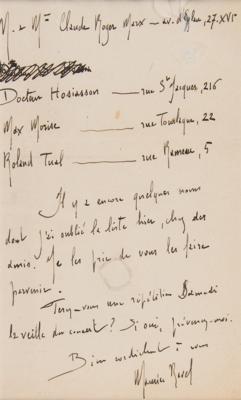 M. & Mme Claude Roger Marx — av. d'Eylau, 27. XVIe
Docteur Hosiasson — rue St Jacques, 216
Max Morise — rue Tourlaque, 22
Roland Tual — rue Rameau, 5
Il y a encore quelques noms
dont j'ai oublié la liste hier, chez des
amis. Je les prie de vous les faire
parvenir.
Ferez-vous une répétition Samedi
la veille du concert? Si oui, prévenez-moi.
Bien cordialement à vous
Maurice Ravel